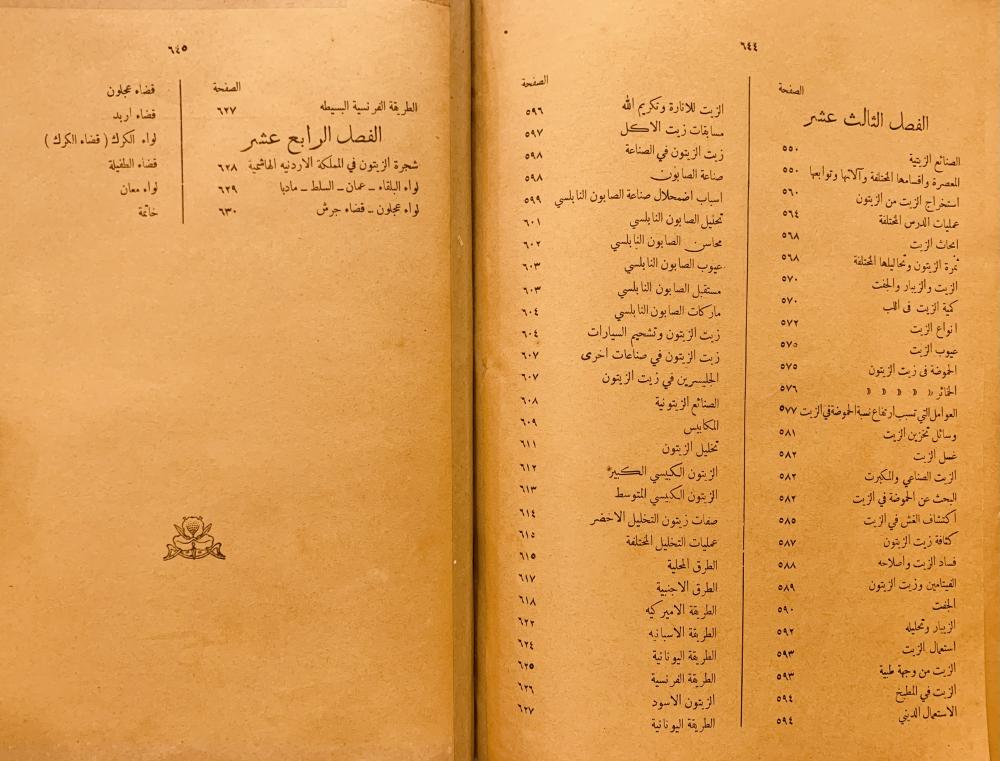 ٦٤٤
الصفحة
الفصل الثالث عشر
الصنائع الزيتية ٥٥٠
المعصرة واقسامها المختلفة وآلاتها وتوابعها ٥٥٠
استخراج الزيت من الزيتون ٥٦٠
عمليات الدرس المختلفة ٥٦٤
ابحاث الزيت ٥٦٨
ثمرة الزيتون وتحاليلها المختلفة ٥٦٨
الزيت والزيبار والجفت ٥٧٠
كمية الزيت فى اللب ٥٧٠
انواع الزيت ٥٧٢
عيوب الزيت ٥٧٥
الحموضة فى زيت الزيتون ٥٧٥
الخمائر » » » » ٥٧٦
العوامل التي تسبب ارتفاع نسبة الحموضة في الزيت ٥٧٧
وسائل تخزين الزيت ٥٨١
غسل الزيت ٥٨٢
الزيت الصناعي والمكبرت ٥٨٢
البحث عن الحموضة في الزيت ٥٨٢
اكتشاف الغش في الزيت ٥٨٥
كثافة زيت الزيتون ٥٨٧
فساد الزيت واصلاحه ٥٨٨
الفيتامين وزيت الزيتون ٥٨٩
الجفت ٥٩٠
الزيبار وتحليله ٥٩٢
استعمال الزيت ٥٩٣
الزيت من وجهة طبية ٥٩٣
الزيت في المطبخ ٥٩٤
الاستعمال الديني ٥٩٤
الصفحة
الزيت للانارة وتكريم الله ٥٩٦
مسابقات زيت الاكل ٥٩٧
زيت الزيتون في الصناعة ٥٩٨
صناعة الصابون ٥٩٨
اسباب اضمحلال صناعة الصابون النابلسي ٥٩٩
تحليل الصابون النابلسي ٦٠١
محاسن الصابون النابلسي ٦٠٢
عيوب الصابون النابلسي ٦٠٣
مستقبل الصابون النابلسي ٦٠٣
ماركات الصابون النابلسي ٦٠٤
زيت الزيتون وتشحيم السيارات ٦٠٤
زيت الزيتون في صناعات اخرى ٦٠٧
الجليسرين في زيت الزيتون ٦٠٧
الصنائع الزيتونية ٦٠٨
المكابيس ٦٠٩
تخليل الزيتون ٦١١
الزيتون الكبيسي الكبير ٦١٢
الزيتون الكبيسي المتوسط ٦١٣
صفات زيتون التخليل الاخضر ٦١٤
عمليات التخليل المختلفة ٦١٥
الطرق المحلية ٦١٥
الطرق الاجنبية ٦١٧
الطريقة الاميركيه ٦١٨
الطريقة الاسبانيه ٦٢٢
الطريقة اليونانية ٦٢٤
الطريقة الفرنسية ٦٢٥
الزيتون الاسود ٦٢٦
الطريقة اليونانية ٦٢٧
٦٤٥
الصفحة
الطريقة الفرنسية البسيطه ٦٢٧
الفصل الرابع عشر
شجرة الزيتون في المملكة الاردنيه الهاشمية ٦٢٨
لواء البلقاء ــ عمان ــ السلط ــ مادبا ٦٢٩
لواء عجلون ــ قضاء جرش ٦٣٠
قضاء عجلون
قضاء اربد
لواء الكرك ( قضاء الكرك )
قضاء الطفيلة
لواء معان
خاتمة